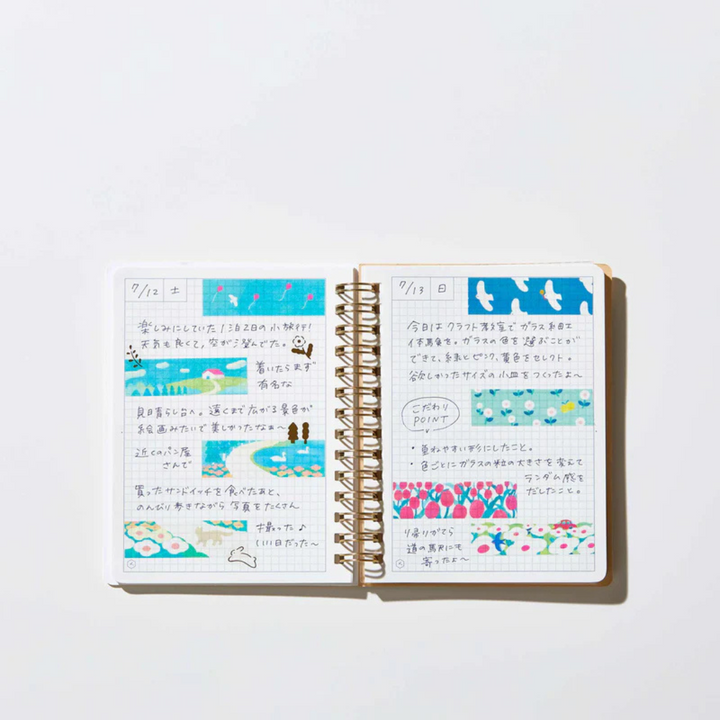 7/12 土
楽しみにしていた1泊2日の小旅行!
天気も良くて、空が澄んでた。
着いたらまず
有名な
見晴らし台へ。遠くまで広がる景色が
絵画みたいで美しかったなぁ〜
近くのパン屋
さんで
買ったサンドイッチを食べたあと、
のんびり歩きながら写真をたくさん
撮った♪
いい1日だった〜
7/13 日
今日はクラフト教室でガラス細工
体験を。ガラスの色を選ぶことが
できて、緑とピンク、黄色をセレクト。
欲しかったサイズの小皿をつくったよ〜
こだわり
POINT
・重ねやすい形にしたこと。
・色ごとにガラスの粒の大きさを変えて
ランダム感を
だしたこと。
帰りがてら
道の駅にも
寄ったよ〜